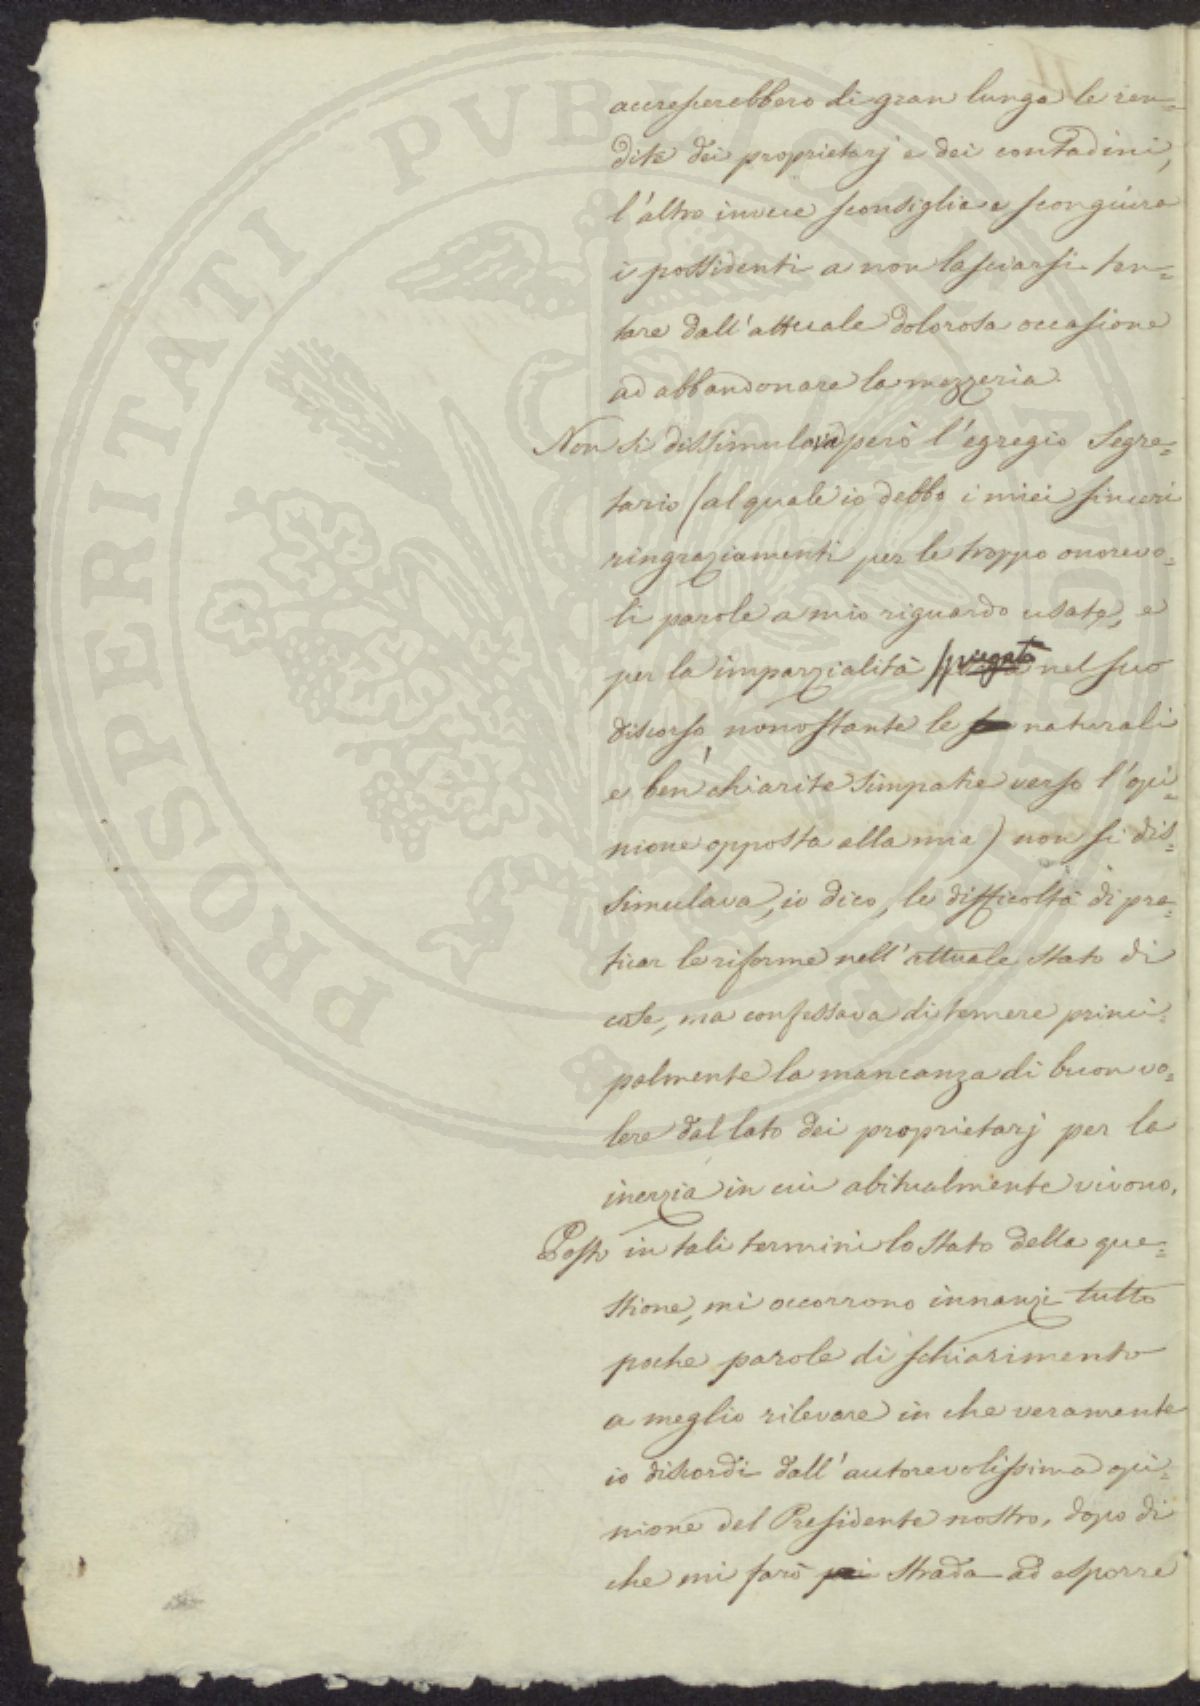 accrescerebbero di gran lunga le ren=
dite dei proprietarj e dei contadini,
l'altro invece sconsiglia e scongiura
i possidenti a non lasciarsi ten=
tare dall'attuale dolorosa occasione
ad abbandonare la mezzeria.
Non si dissimulava però l'egregio Segre=
tario (al quale io debbo i miei sinceri
ringraziamenti per le troppo onorevo=
li parole a mio riguardo usate, e
per la imparzialità spiegata nel suo
discorso, nonostante le naturali
e ben chiarite simpatie verso l'opi=
nione opposta alla mia) non si dis=
simulava, io dico, le difficoltà di pra=
ticar le riforme nell'attuale stato di
cose, ma confessava di temere princi=
palmente la mancanza di buon vo=
lere dal lato dei proprietarj per la
inerzia in cui abitualmente vivono.
Posto in tali termini lo stato della que=
stione, mi occorrono innanzi tutto
poche parole di schiarimento
a meglio rilevare in che veramente
io discordi dall'autorevolissima opi=
nione del Presidente nostro, dopo di
che mi farò strada ad esporre
PROSPERITATI PVBLICAE AVGENDAE